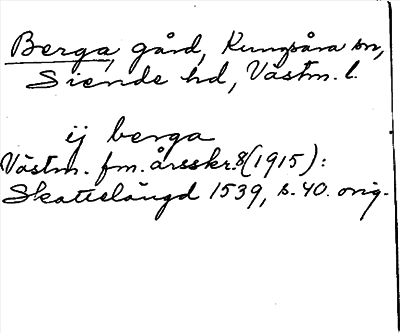 Berga, gård, Kungsåra sn,
Siende hd, Västm. l.
ij berga
Västm. fm. årsskr. 8 (1915):
Skattelängd 1539, s. 40. orig.